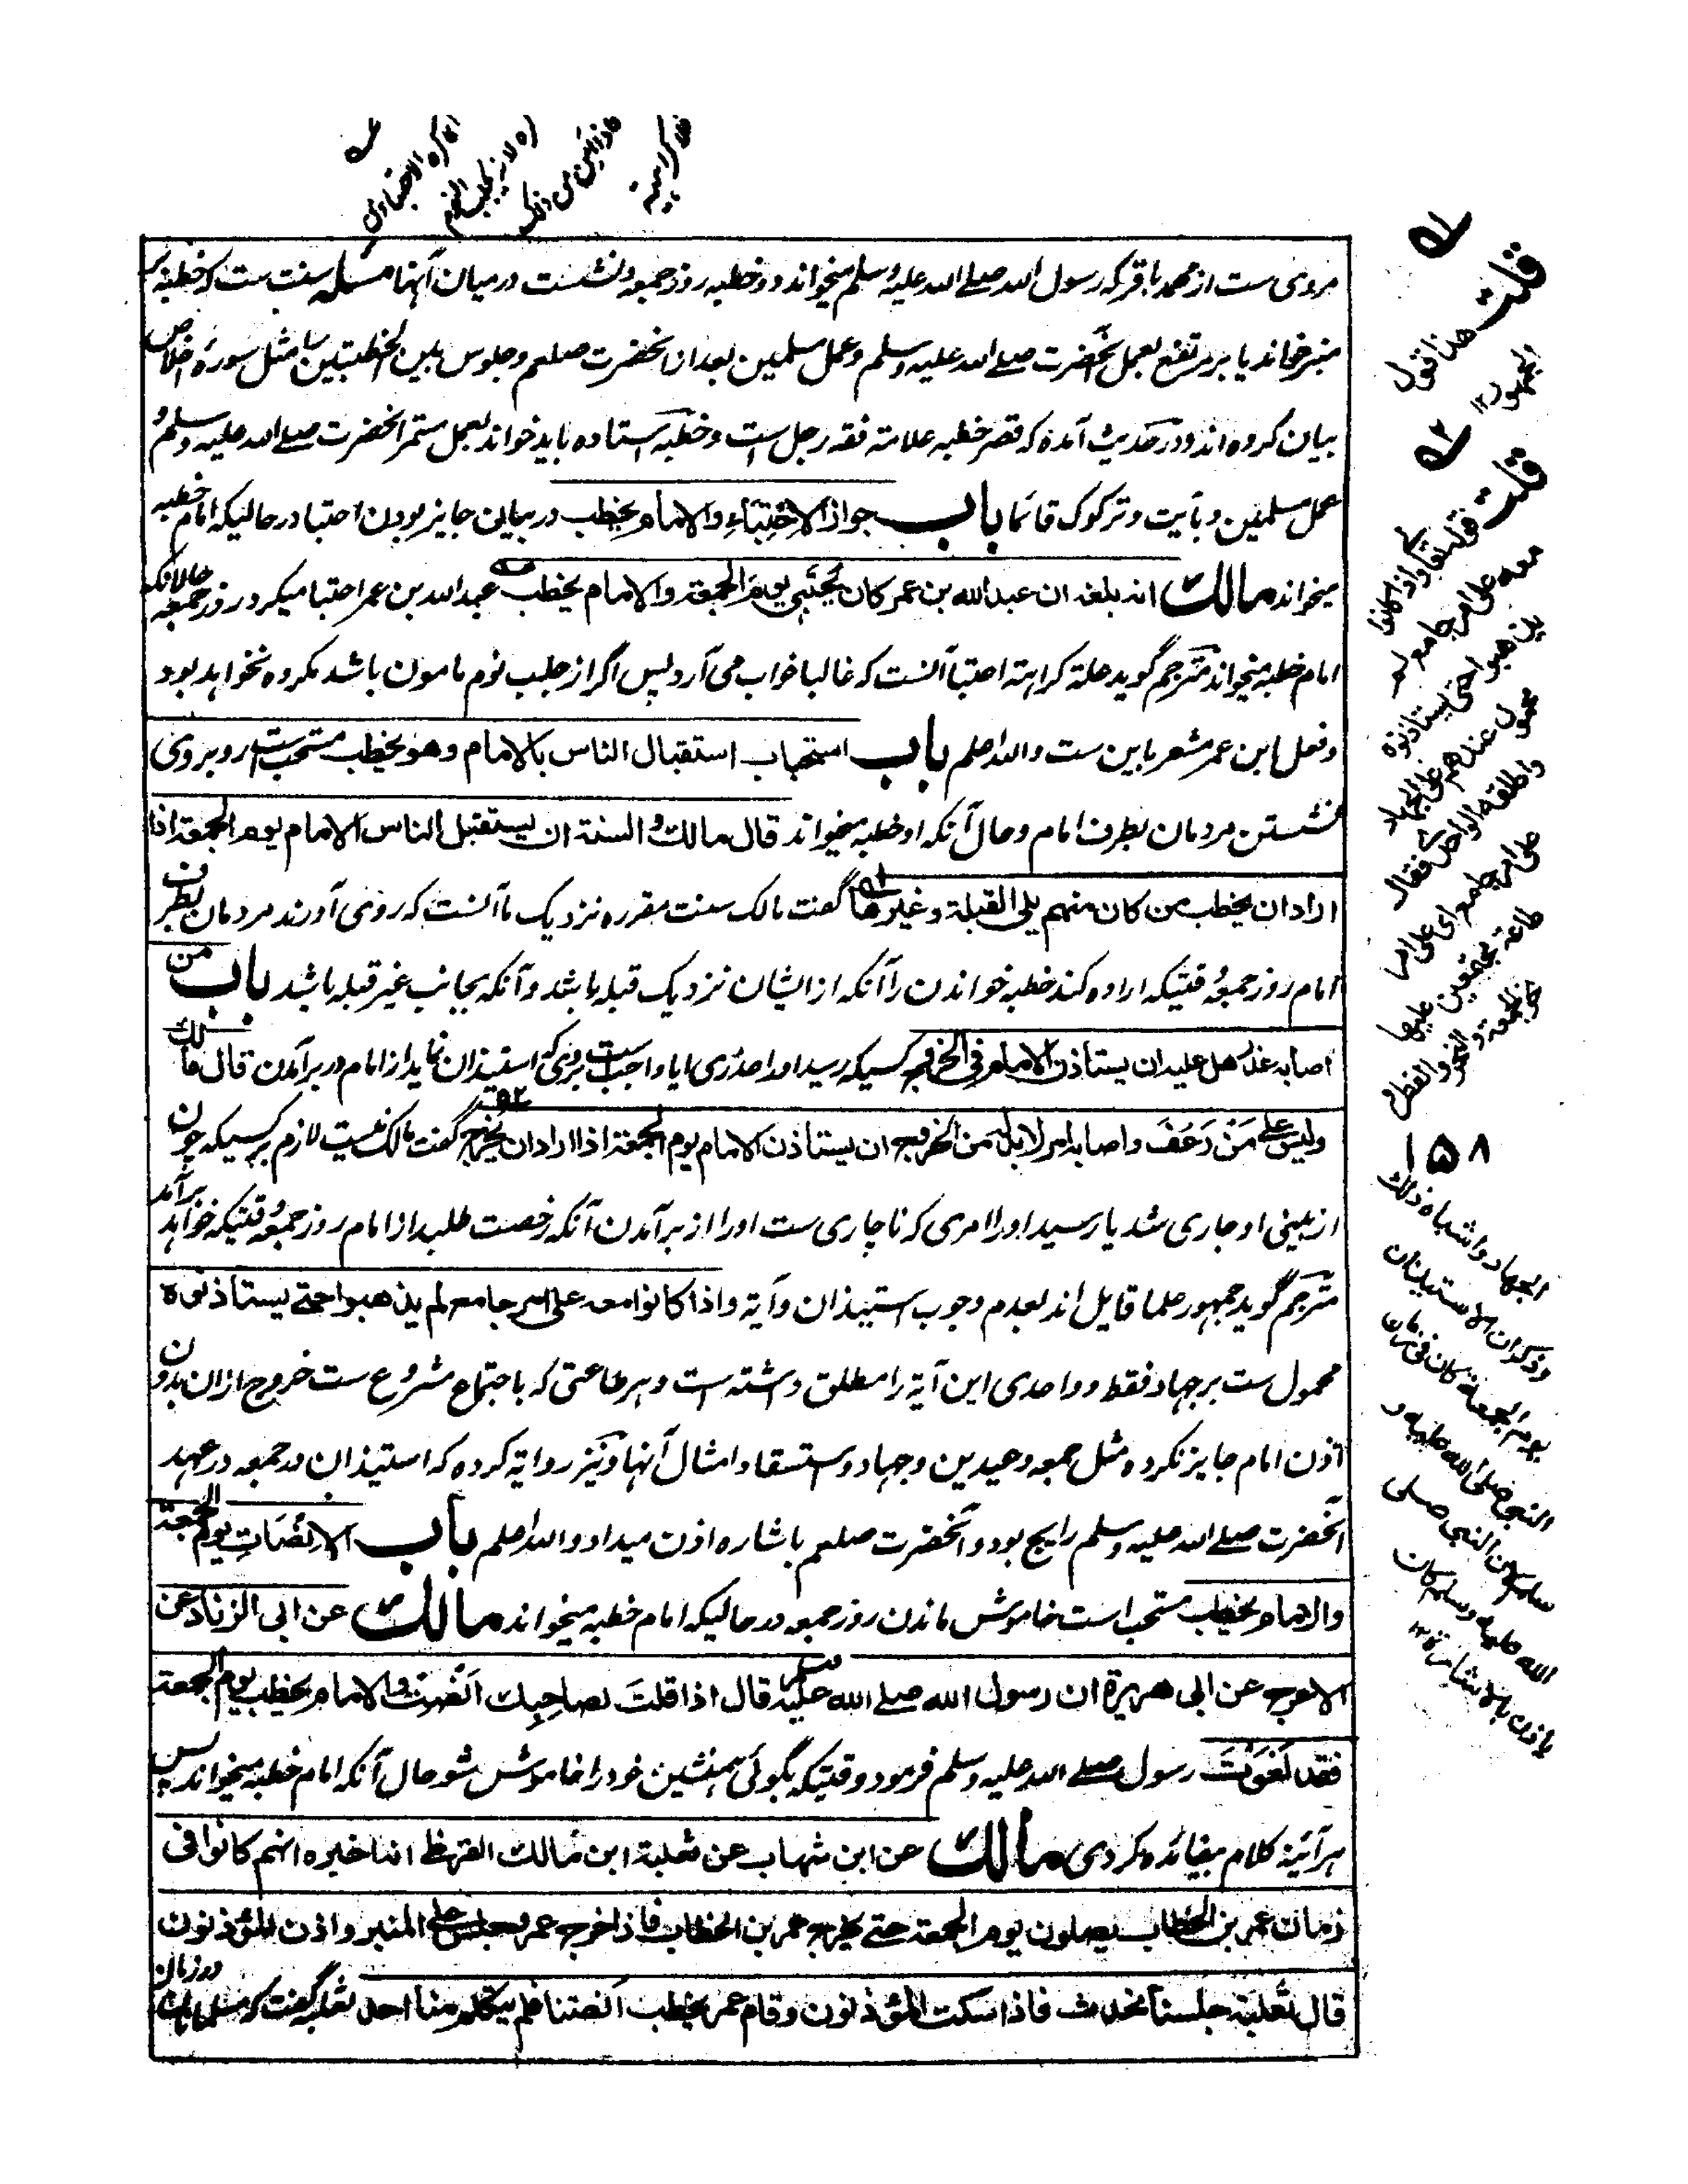 مروی ست از محمد باقر که رسول الله صلے الله علیه وسلم میخواند دو خطبه روز جمعه و نشست در میان آنها مسئله سنت ست که خطبه بر
منبر خواند یا بر مرتفع بعمل آنحضرت صلے الله علیه وسلم و عمل مسلمین بعد از آنحضرت صلعم و جلوس بین الخطبتین را مثل سورۀ اخلاص
بیان کرده اند و در حدیث آمده که قصر خطبه علامته فقه رجل است و خطبه استاده باید خواند بعمل مستمر آنحضرت صلے الله علیه وسلم و
عمل مسلمین و بآیت وترکوک قائما باب جواز الاحتباء والامام یخطب در بیان جایز بودن احتبا در حالیکه امام خطبه
میخواند مالک انه بلغه ان عبد الله بن عمر کان یحتبی یوم الجمعة والامام یخطب عبد الله بن عمر احتبا میکرد روز جمعه حالانکه
امام خطبه میخواند مترجم گوید علة کراهته احتبا آنست که غالبا خواب می آرد پس اگر از جلب نوم مامون باشد مکروه نخواهد بود
و فعل ابن عمر مشعر باین ست والله اعلم باب استحباب استقبال الناس بالامام وهو یخطب مستحب ست روبروی
نشستن مردمان بطرف امام و حال آنکه او خطبه میخواند قال مالک والسنة ان یستقبل الناس الامام یوم الجمعة اذا
اراد ان یخطب من کان منهم یلی القبلة وغیرها گفت مالک سنت مقرره نزدیک ما آنست که روی آورند مردمان بطرف
امام روز جمعه وقتیکه اراده کند خطبه خواندن را آنکه از ایشان نزدیک قبله باشد و آنکه بجانب غیر قبله باشد باب من
اصابه عذر هل علیه ان یستاذن الامام فی الخروج کسیکه رسید او را عذری ایا واجب ست بروی که استیذان نماید از امام در برآمدن قال مالک
ولیس علی من رعف واصابه امر لا بد له من الخروج ان یستاذن الامام یوم الجمعة اذا اراد ان یخرج گفت مالک نیست لازم بر کسیکه خون
از بینی او جاری شد یا رسید او را امری که ناچاری ست او را از برآمدن آنکه رخصت طلبد از امام روز جمعه وقتیکه خواهد برآمد
مترجم گوید جمهور علما قایل اند بعدم وجوب استیذان و آیة واذا کانوا معه علی امر جامع لم یذهبوا حتے یستاذنوه
محمول ست بر جهاد فقط و واحدی این آیة را مطلق داشته است و هر طاعتی که باجتماع مشروع ست خروج ازان بدون
اذن امام جایز نکرده مثل جمعه و عیدین و جهاد و استسقا و امثال آنها و نیز روایة کرده که استیذان در جمعه در عهد
آنحضرت صلے الله علیه وسلم رایج بود و آنحضرت صلعم باشاره اذن میداد والله اعلم باب الانصات یوم الجمعة
والامام یخطب مستحب است خاموش ماندن روز جمعه در حالیکه امام خطبه میخواند مالک عن ابی الزناد عن
الاعرج عن ابی هریرة ان رسول الله صلے الله علیه وسلم قال اذا قلت لصاحبک انصت والامام یخطب یوم الجمعة
فقد لغوت رسول صلے الله علیه وسلم فرمود وقتیکه بگوئی همنشین خود را خاموش شو حال آنکه امام خطبه میخواند پس
هر آئینه کلام بیفائده کردی مالک عن ابن شهاب عن ثعلبة ابن مالک القرظی انه اخبره انهم کانوا فی
زمان عمر بن الخطاب یصلون یوم الجمعة حتے یخرج عمر بن الخطاب فاذا خرج عمر وجلس علی المنبر واذن المؤذنون
قال ثعلبة جلسنا نحدث فاذا سکت المؤذنون وقام عمر یخطب انصتنا فلم یتکلم منا احد ثعلبه گفت که مسلمانان در زمان
قلت هذا قول
الجمهور ۱۲
قلت قوله تعالی واذا کانوا
معه علی امر جامع لم
یذهبوا حتی یستاذنوه
محمول عندهم علی الجهاد
واطلقه الواحدی فقال
علی امر جامع ای علی امر
طاعة یجتمعون علیها
نحو الجمعة والنحر والفطر و
۱۵۸
الجهاد واشباه ذلک
وذکر ان الاستیذان
یوم الجمعة کان فی زمان
النبی صلی الله علیه و
سلم وان النبی صلی
الله علیه وسلم کان
یاذن بالاشارة ۱۲